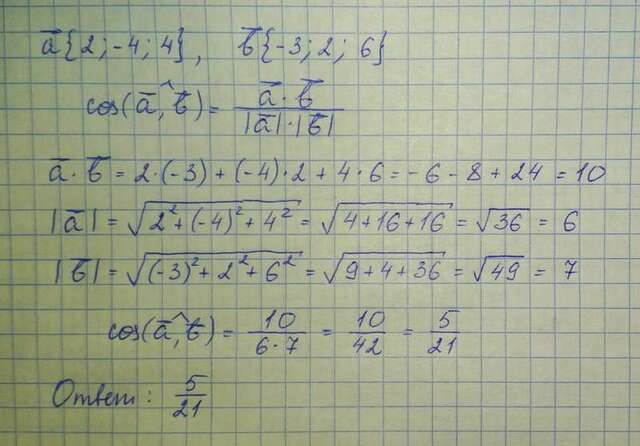 a̅{2; -4; 4}, b̅{-3; 2; 6}
cos(a̅,^b̅) = a̅ · b̅ / |a̅| · |b̅|
a̅ · b̅ = 2·(-3) + (-4)·2 + 4·6 = -6 - 8 + 24 = 10
|a̅| = √(2² + (-4)² + 4²) = √(4+16+16) = √36 = 6
|b̅| = √((-3)² + 2² + 6²) = √(9+4+36) = √49 = 7
cos(a̅,^b̅) = 10/6·7 = 10/42 = 5/21
Ответ: 5/21